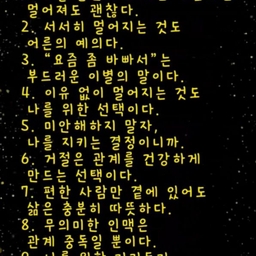 멀어져도 괜찮다.
2. 서서히 멀어지는 것도
어른의 예의다.
3. "요즘 좀 바빠서"는
부드러운 이별의 말이다.
4. 이유 없이 멀어지는 것도
나를 위한 선택이다.
5. 미안해하지 말자,
나를 지키는 결정이니까.
6. 거절은 관계를 건강하게
만드는 선택이다.
7. 편한 사람만 곁에 있어도
삶은 충분히 따뜻하다.
8. 무의미한 인맥은
관계 중독일 뿐이다.